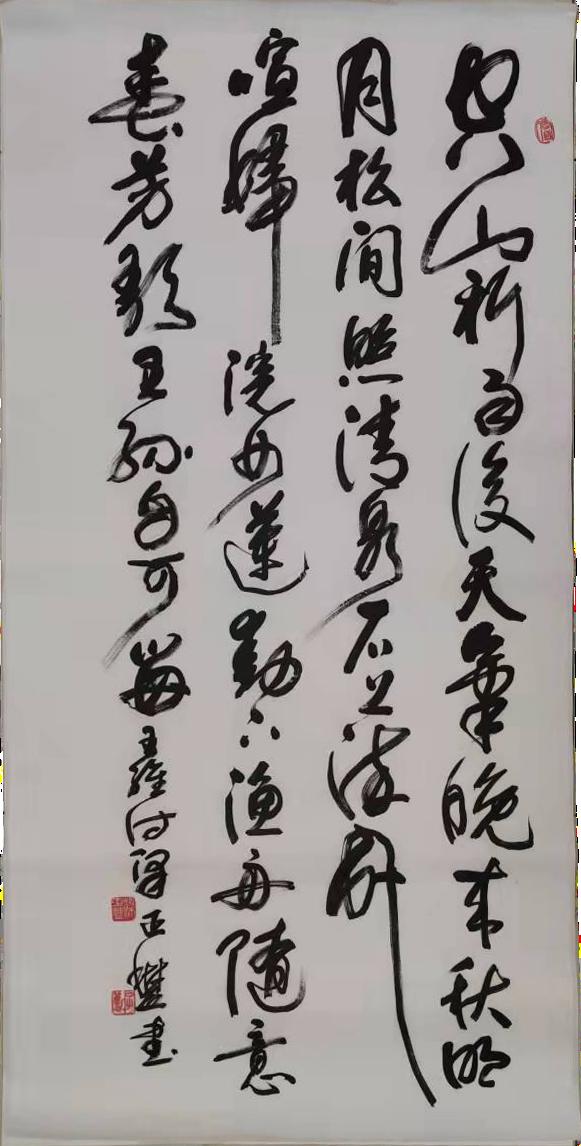 空山新雨後天氣晚來秋明
月松間照清泉石上流竹
喧歸浣女蓮動下漁舟隨意
春芳歇王孫自可留王維詩梁正書